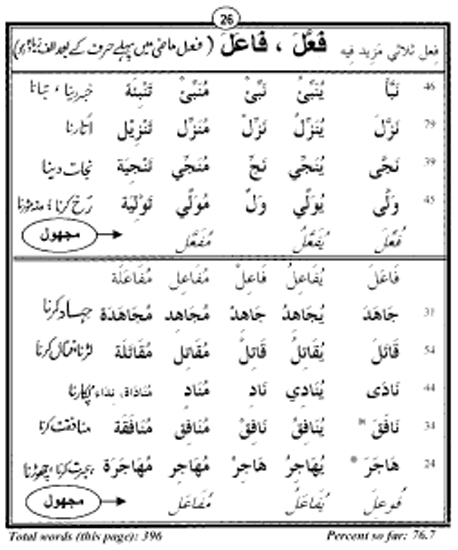 26
فعل ثلاثي مزيد فيه فَعَّلَ ، فَاعَلَ ( فعل ماضی میں پہلے حرف کے بعد الف
46 نَبَّأَ يُنَبِّئُ نَبِّئْ مُنَبِّئ تَنْبِئَة خبر دینا ، بتانا
79 نَزَّلَ يُنَزِّلُ نَزِّلْ مُنَزِّل تَنْزِيْل اُتارنا
39 نَجَّى يُنَجِّي نَجِّ مُنَجِّي تَنْجِيَة نجات دینا
45 وَلَّى يُوَلِّي وَلِّ مُوَلِّي تَوْلِيَة رخ کرنا ؛ منہ موڑنا
فُعِّلَ يُفَعَّلُ مُفَعَّل مجهول
فَاعَلَ يُفَاعِلُ فَاعِلْ مُفَاعِل مُفَاعَلَة
31 جَاهَدَ يُجَاهِدُ جَاهِدْ مُجَاهِد مُجَاهَدَة جہاد کرنا
54 قَاتَلَ يُقَاتِلُ قَاتِلْ مُقَاتِل مُقَاتَلَة لڑنا، قتال کرنا
44 نَادَى يُنَادِي نَادِ مُنَادٍ مُنَادَاة، نِدَاء پکارنا
34 نَافَقَ يُنَافِقُ نَافِقْ مُنَافِق مُنَافَقَة منافقت کرنا
24 هَاجَرَ * يُهَاجِرُ هَاجِرْ مُهَاجِر مُهَاجَرَة ہجرت کرنا، چھوڑنا
فُوعِلَ يُفَاعَلُ مُفَاعَل مجهول
Total words (this page): 396 Percent so far: 76.7